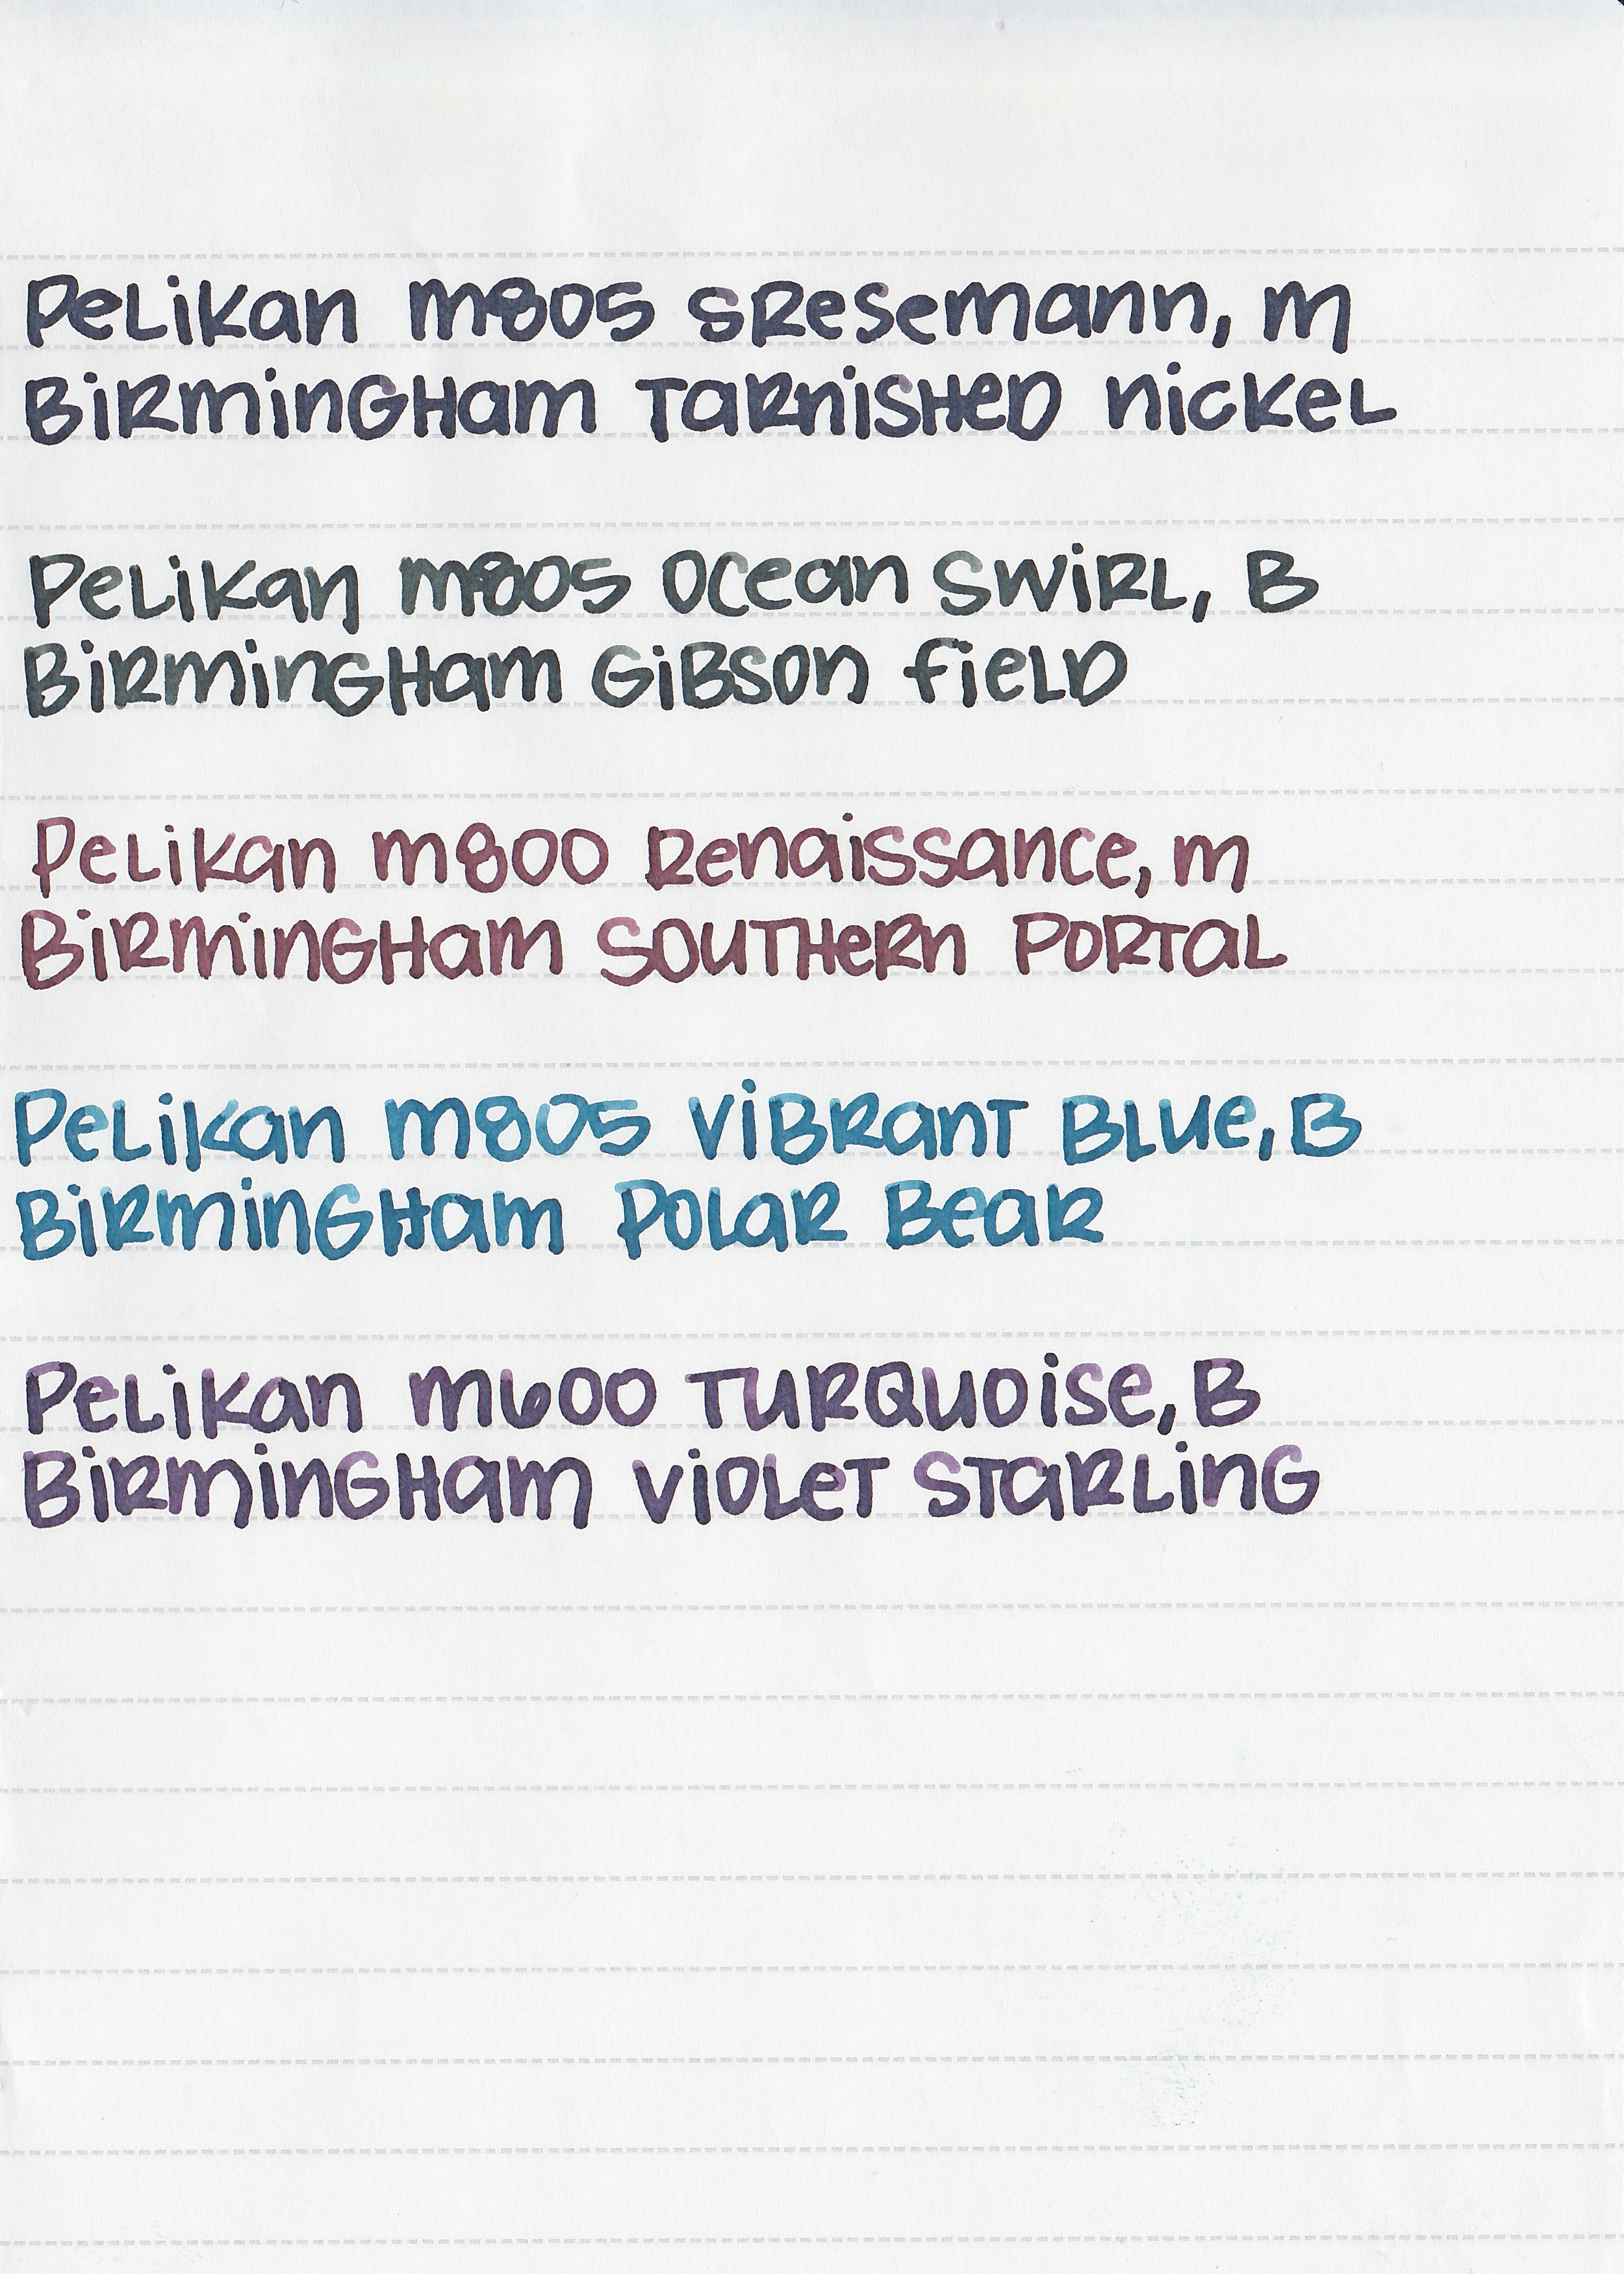 Pelikan m805 SResemann, m
Birmingham Tarnished Nickel
Pelikan m805 Ocean Swirl, B
Birmingham Gibson Field
Pelikan m800 Renaissance, m
Birmingham Southern Portal
Pelikan m805 Vibrant Blue, B
Birmingham Polar Bear
Pelikan m600 Turquoise, B
Birmingham Violet Starling